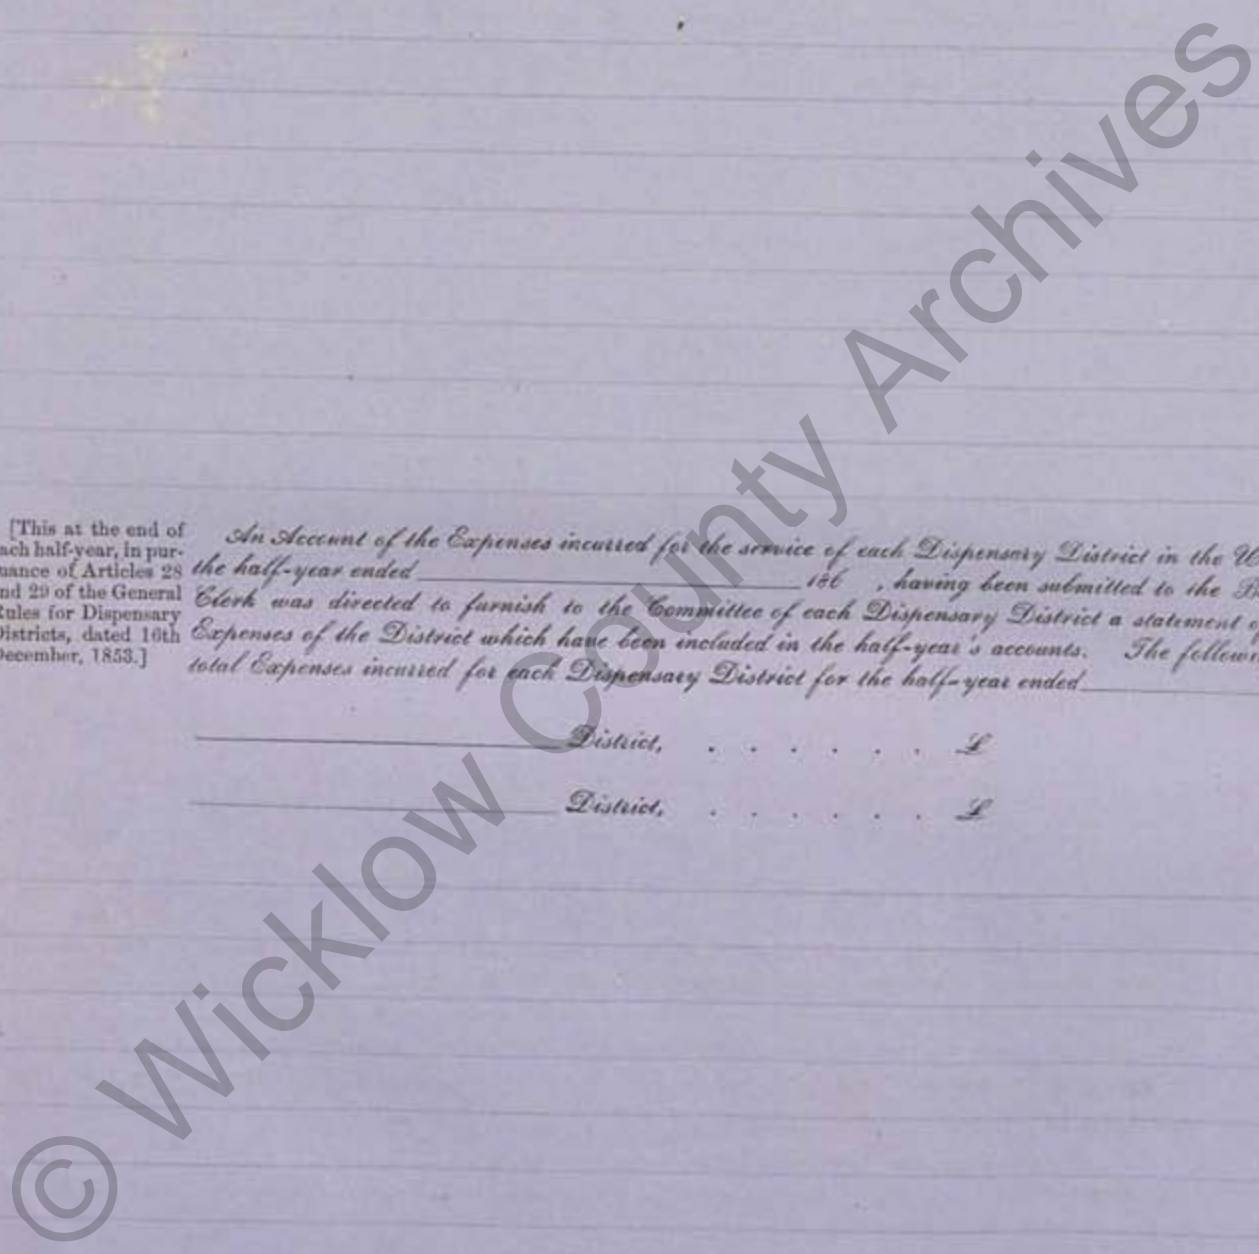 [This at the end of
ach half-year, in pur-
uance of Articles 28
nd 29 of the General
Rules for Dispensary
Districts, dated 16th
December, 1853.]
An Account of the Expenses incurred for the service of each Dispensary District in the U
the half-year ended 186 , having been submitted to the
Clerk was directed to furnish to the Committee of each Dispensary District a statement o
Expenses of the District which have been included in the half-year's accounts. The follow
total Expenses incurred for each Dispensary District for the half-year ended
District, . . . . . . £
District, . . . . . . £
© Wicklow County Archives